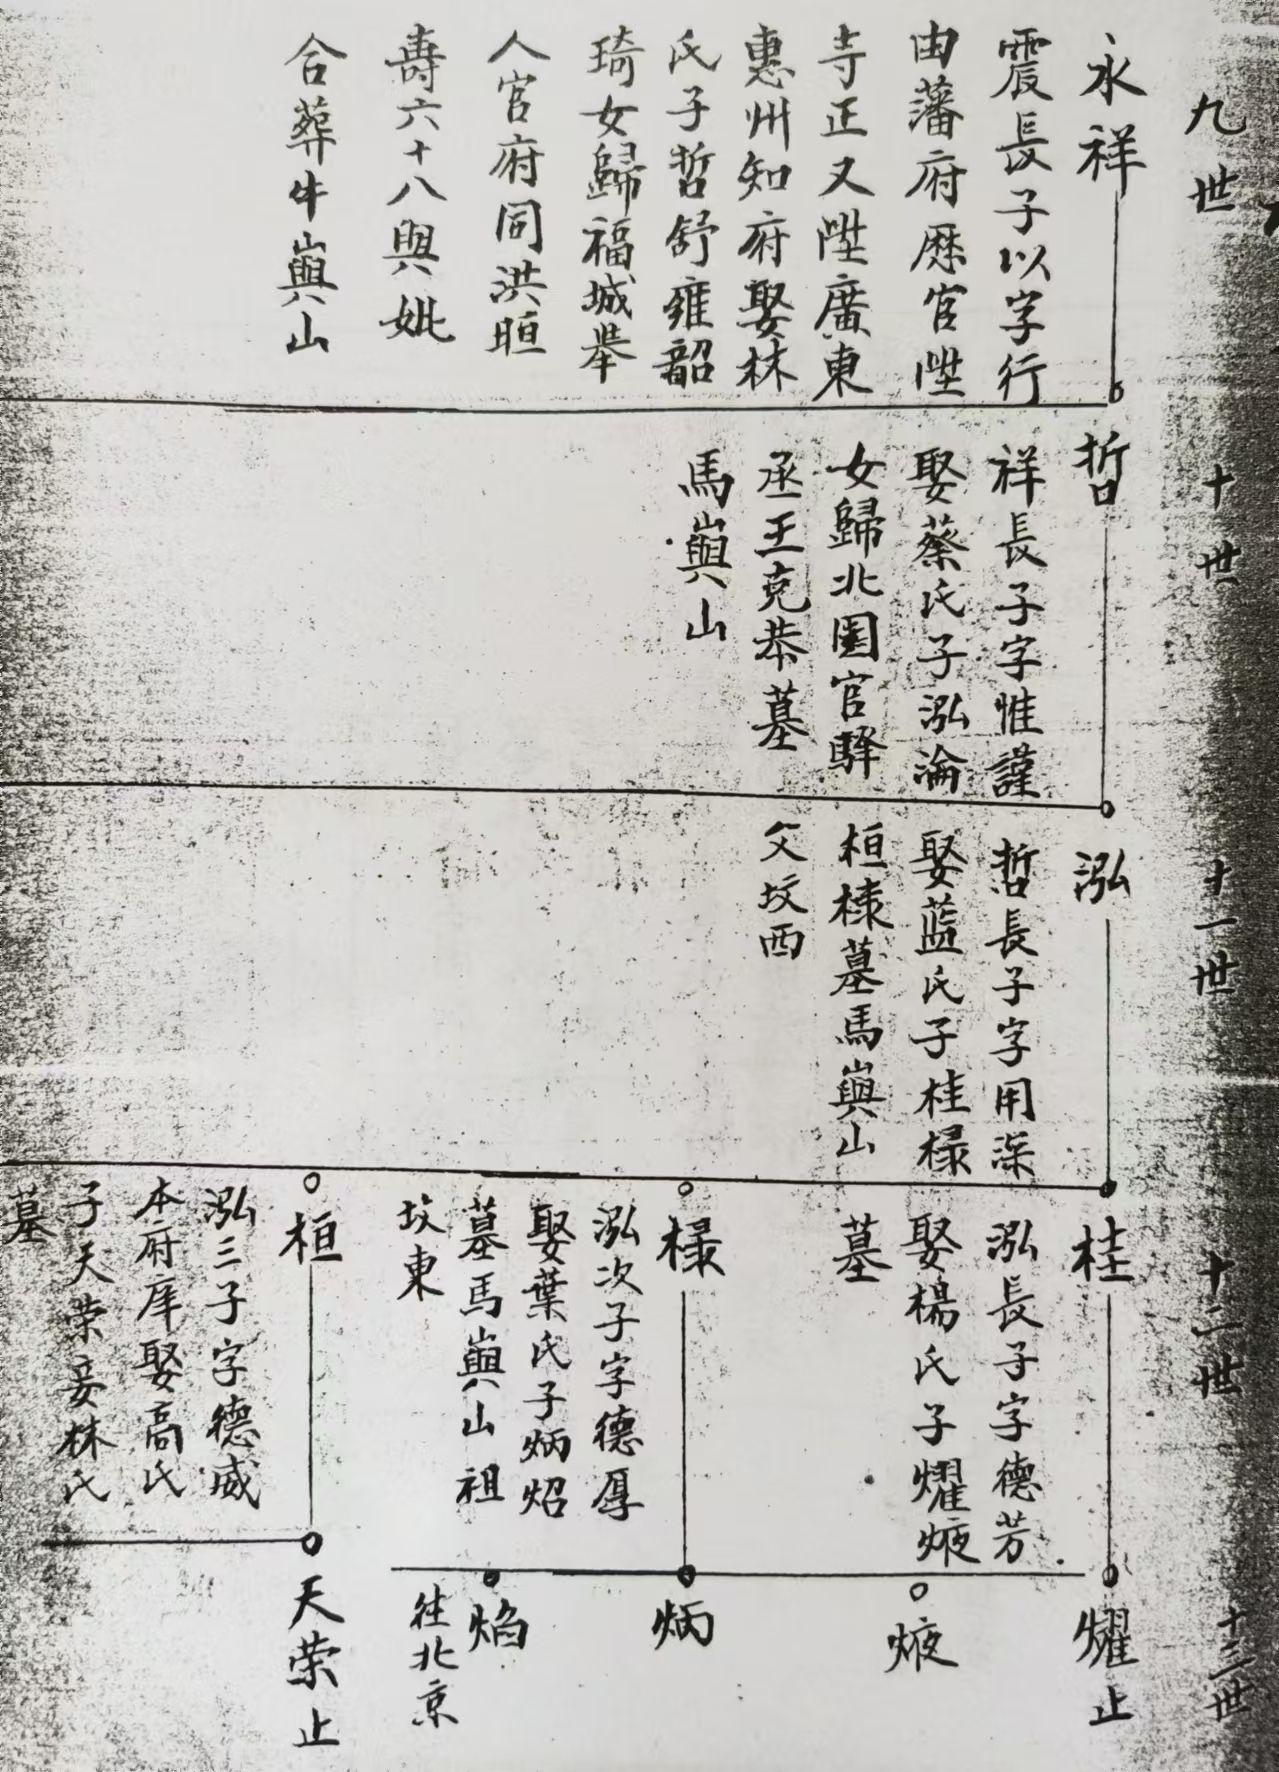 九世
永祥
震長子以字行
由藩府歷官陞
寺正又陞廣東
惠州知府娶林
氏子哲舒雍韶
琦女歸福城舉
人官府同洪晅
壽六十八與妣
合葬牛嶼山
十世
哲
祥長子字惟謹
娶蔡氏子泓淪
女歸北圍官驛
丞王克恭墓
馬嶼山
十一世
泓
哲長子字用深
娶蓝氏子桂椂
桓椂墓馬嶼山
父坟西
十二世
桂
泓長子字德芳
娶楊氏子燿焲
墓
椂
泓次子字德厚
娶葉氏子炳炤
墓馬嶼山祖
坟東
桓
泓三子字德威
本府庠娶高氏
子天荣妾林氏
墓
十三世
燿止
炳
焰
往北京
天荣止